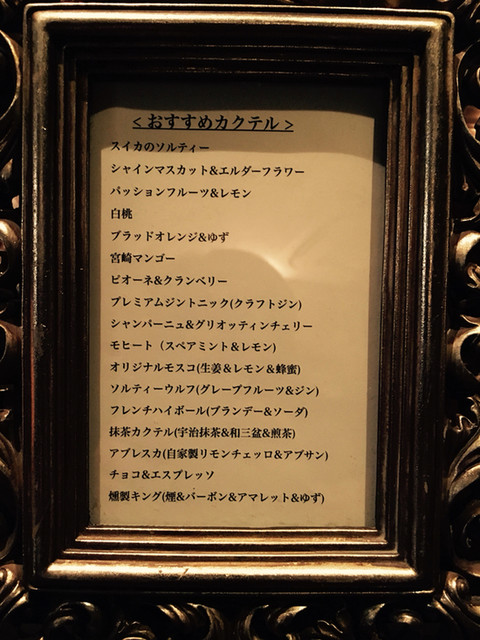 ＜おすすめカクテル＞
スイカのソルティー
シャインマスカット&エルダーフラワー
パッションフルーツ&レモン
白桃
ブラッドオレンジ&ゆず
宮崎マンゴー
ピオーネ&クランベリー
プレミアムジントニック(クラフトジン)
シャンパーニュ&グリオッティンチェリー
モヒート（スペアミント&レモン)
オリジナルモスコ(生姜&レモン&蜂蜜)
ソルティーウルフ(グレープフルーツ&ジン)
フレンチハイボール(ブランデー&ソーダ)
抹茶カクテル(宇治抹茶&和三盆&煎茶)
アブレスカ(自家製リモンチェッロ&アブサン)
チョコ&エスプレッソ
燻製キング(煙&バーボン&アマレット&ゆず)